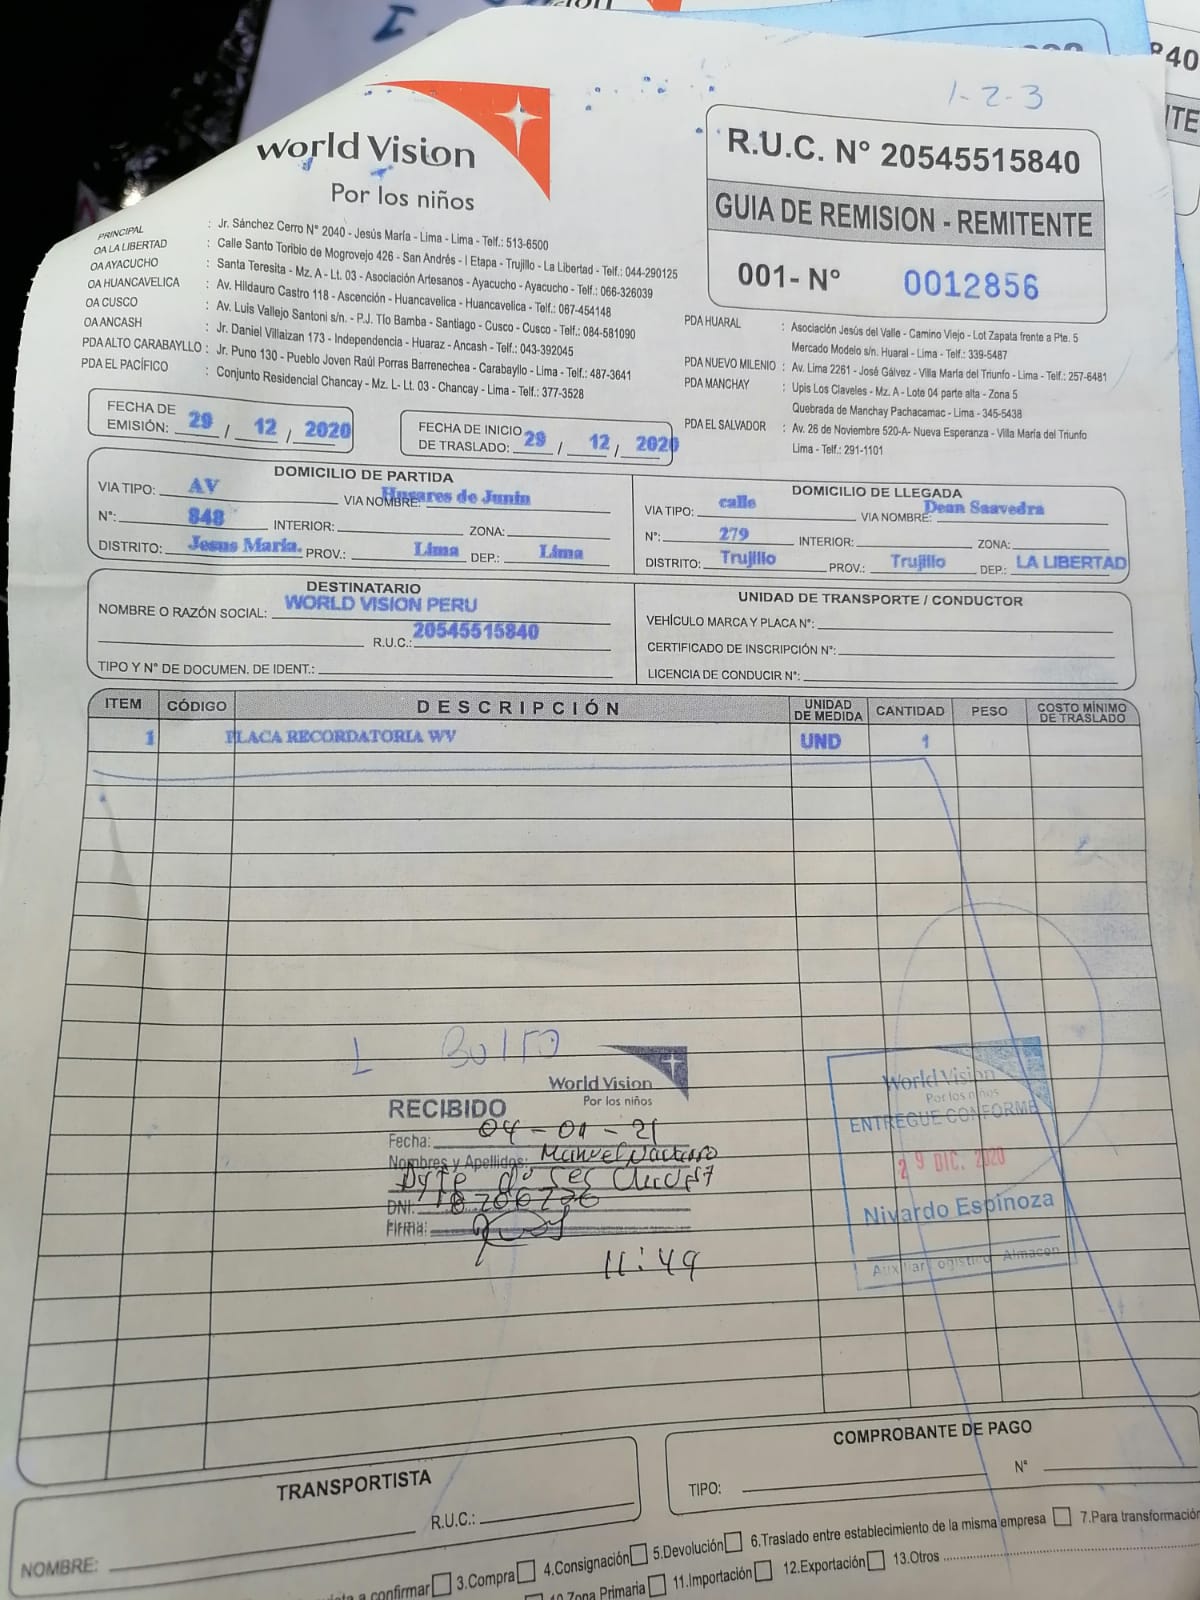 1-2-3
World Vision
Por los niños
R.U.C. N° 20545515840
GUIA DE REMISION - REMITENTE
001- N° 0012856
PRINCIPAL : Jr. Sánchez Cerro N° 2040 - Jesús María - Lima - Lima - Telf.: 513-6500
OA LA LIBERTAD : Calle Santo Toribio de Mogrovejo 426 - San Andrés - I Etapa - Trujillo - La Libertad - Telf.: 044-290125
OA AYACUCHO : Santa Teresita - Mz. A - Lt. 03 - Asociación Artesanos - Ayacucho - Ayacucho - Telf.: 066-326039
OA HUANCAVELICA : Av. Hildauro Castro 118 - Ascención - Huancavelica - Huancavelica - Telf.: 067-454148
OA CUSCO : Av. Luis Vallejo Santoni s/n. - P.J. Tío Bamba - Santiago - Cusco - Cusco - Telf.: 084-581090
OA ANCASH : Jr. Daniel Villaizan 173 - Independencia - Huaraz - Ancash - Telf.: 043-392045
PDA ALTO CARABAYLLO : Jr. Puno 130 - Pueblo Joven Raúl Porras Barrenechea - Carabayllo - Lima - Telf.: 487-3641
PDA EL PACÍFICO : Conjunto Residencial Chancay - Mz. L- Lt. 03 - Chancay - Lima - Telf.: 377-3528
PDA HUARAL : Asociación Jesús del Valle - Camino Viejo - Lot Zapata frente a Pte. 5
Mercado Modelo s/n. Huaral - Lima - Telf.: 339-5487
PDA NUEVO MILENIO : Av. Lima 2261 - José Gálvez - Villa María del Triunfo - Lima - Telf.: 257-6481
PDA MANCHAY : Upis Los Claveles - Mz. A - Lote 04 parte alta - Zona 5
Quebrada de Manchay Pachacamac - Lima - 345-5438
PDA EL SALVADOR : Av. 26 de Noviembre 520-A- Nueva Esperanza - Villa María del Triunfo
Lima - Telf.: 291-1101
FECHA DE EMISIÓN: 29 / 12 / 2020
FECHA DE INICIO DE TRASLADO: 29 / 12 / 2020
DOMICILIO DE PARTIDA
VIA TIPO: AV VIA NOMBRE: Husares de Junin
N°: 848 INTERIOR: ZONA:
DISTRITO: Jesus Maria. PROV.: Lima DEP.: Lima
DOMICILIO DE LLEGADA
VIA TIPO: calle VIA NOMBRE: Dean Saavedra
N°: 279 INTERIOR: ZONA:
DISTRITO: Trujillo PROV.: Trujillo DEP.: LA LIBERTAD
DESTINATARIO
NOMBRE O RAZÓN SOCIAL: WORLD VISION PERU
R.U.C.: 20545515840
TIPO Y N° DE DOCUMEN. DE IDENT.:
UNIDAD DE TRANSPORTE / CONDUCTOR
VEHÍCULO MARCA Y PLACA N°:
CERTIFICADO DE INSCRIPCIÓN N°:
LICENCIA DE CONDUCIR N°:
ITEM CÓDIGO DESCRIPCIÓN UNIDAD DE MEDIDA CANTIDAD PESO COSTO MÍNIMO DE TRASLADO
1 PLACA RECORDATORIA WV UND 1
1 Bulto
World Vision
Por los niños
RECIBIDO
Fecha: 04-01-21
Nombres y Apellidos: Manuel
DNI: 18206726
Firma:
11:49
World Vision
Por los niños
ENTREGUE CONFORME
29 DIC. 2020
Nivardo Espinoza
Auxiliar Logistico Almacen
TRANSPORTISTA
R.U.C.:
NOMBRE:
COMPROBANTE DE PAGO
TIPO: N°
a confirmar 3.Compra 4.Consignación 5.Devolución 6.Traslado entre establecimiento de la misma empresa 7.Para transformación
Zona Primaria 11.Importación 12.Exportación 13.Otros